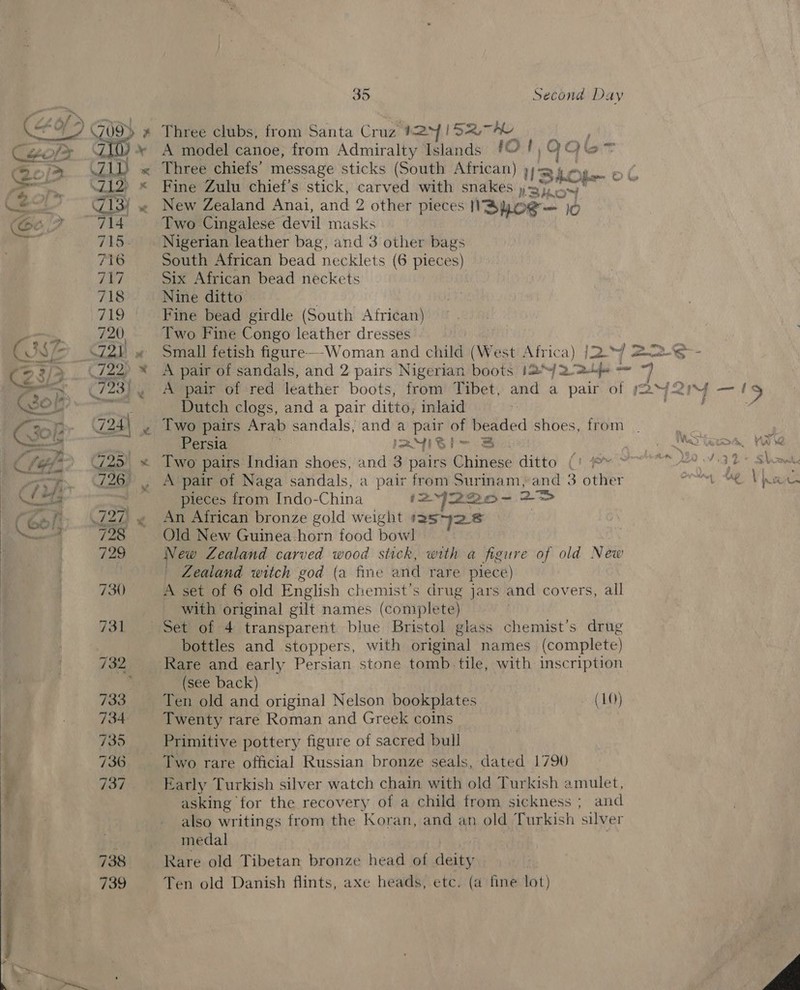 35 Second Day
709 Three clubs, from Santa Cruz
710 A model canoe, from Admiralty Islands
711 Three chiefs' message sticks (South African)
712 Fine Zulu chief's stick, carved with snakes
713 New Zealand Anai, and 2 other pieces
714 Two Cingalese devil masks
715 Nigerian leather bag, and 3 other bags
716 South African bead necklets (6 pieces)
717 Six African bead neckets
718 Nine ditto
719 Fine bead girdle (South African)
720 Two Fine Congo leather dresses
721 Small fetish figure—Woman and child (West Africa)
722 A pair of sandals, and 2 pairs Nigerian boots
723 A pair of red leather boots, from Tibet, and a pair of
Dutch clogs, and a pair ditto, inlaid
724 Two pairs Arab sandals, and a pair of beaded shoes, from
Persia
725 Two pairs Indian shoes, and 3 pairs Chinese ditto
726 A pair of Naga sandals, a pair from Surinam, and 3 other
pieces from Indo-China
727 An African bronze gold weight
728 Old New Guinea horn food bowl
729 New Zealand carved wood stick, with a figure of old New
Zealand witch god (a fine and rare piece)
730 A set of 6 old English chemist's drug jars and covers, all
with original gilt names (complete)
731 Set of 4 transparent blue Bristol glass chemist's drug
bottles and stoppers, with original names (complete)
732 Rare and early Persian stone tomb tile, with inscription
(see back)
733 Ten old and original Nelson bookplates (10)
734 Twenty rare Roman and Greek coins
735 Primitive pottery figure of sacred bull
736 Two rare official Russian bronze seals, dated 1790
737 Early Turkish silver watch chain with old Turkish amulet,
asking for the recovery of a child from sickness ; and
also writings from the Koran, and an old Turkish silver
medal
738 Rare old Tibetan bronze head of deity
739 Ten old Danish flints, axe heads, etc. (a fine lot)